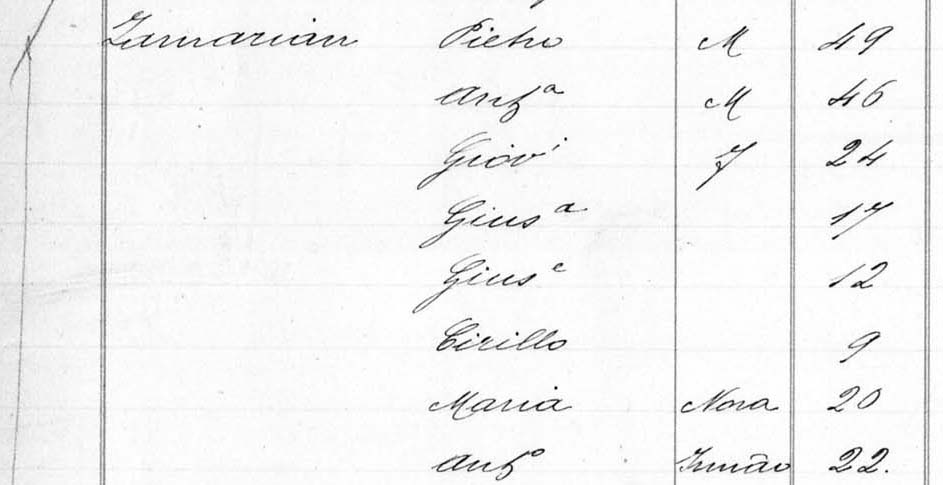 Zamarian Pietro M 49
Antª M 46
Giov' F 24
Giusª 17
Giusᵉ 12
Cirillo 9
Maria Nora 20
Antº Irmão 22.